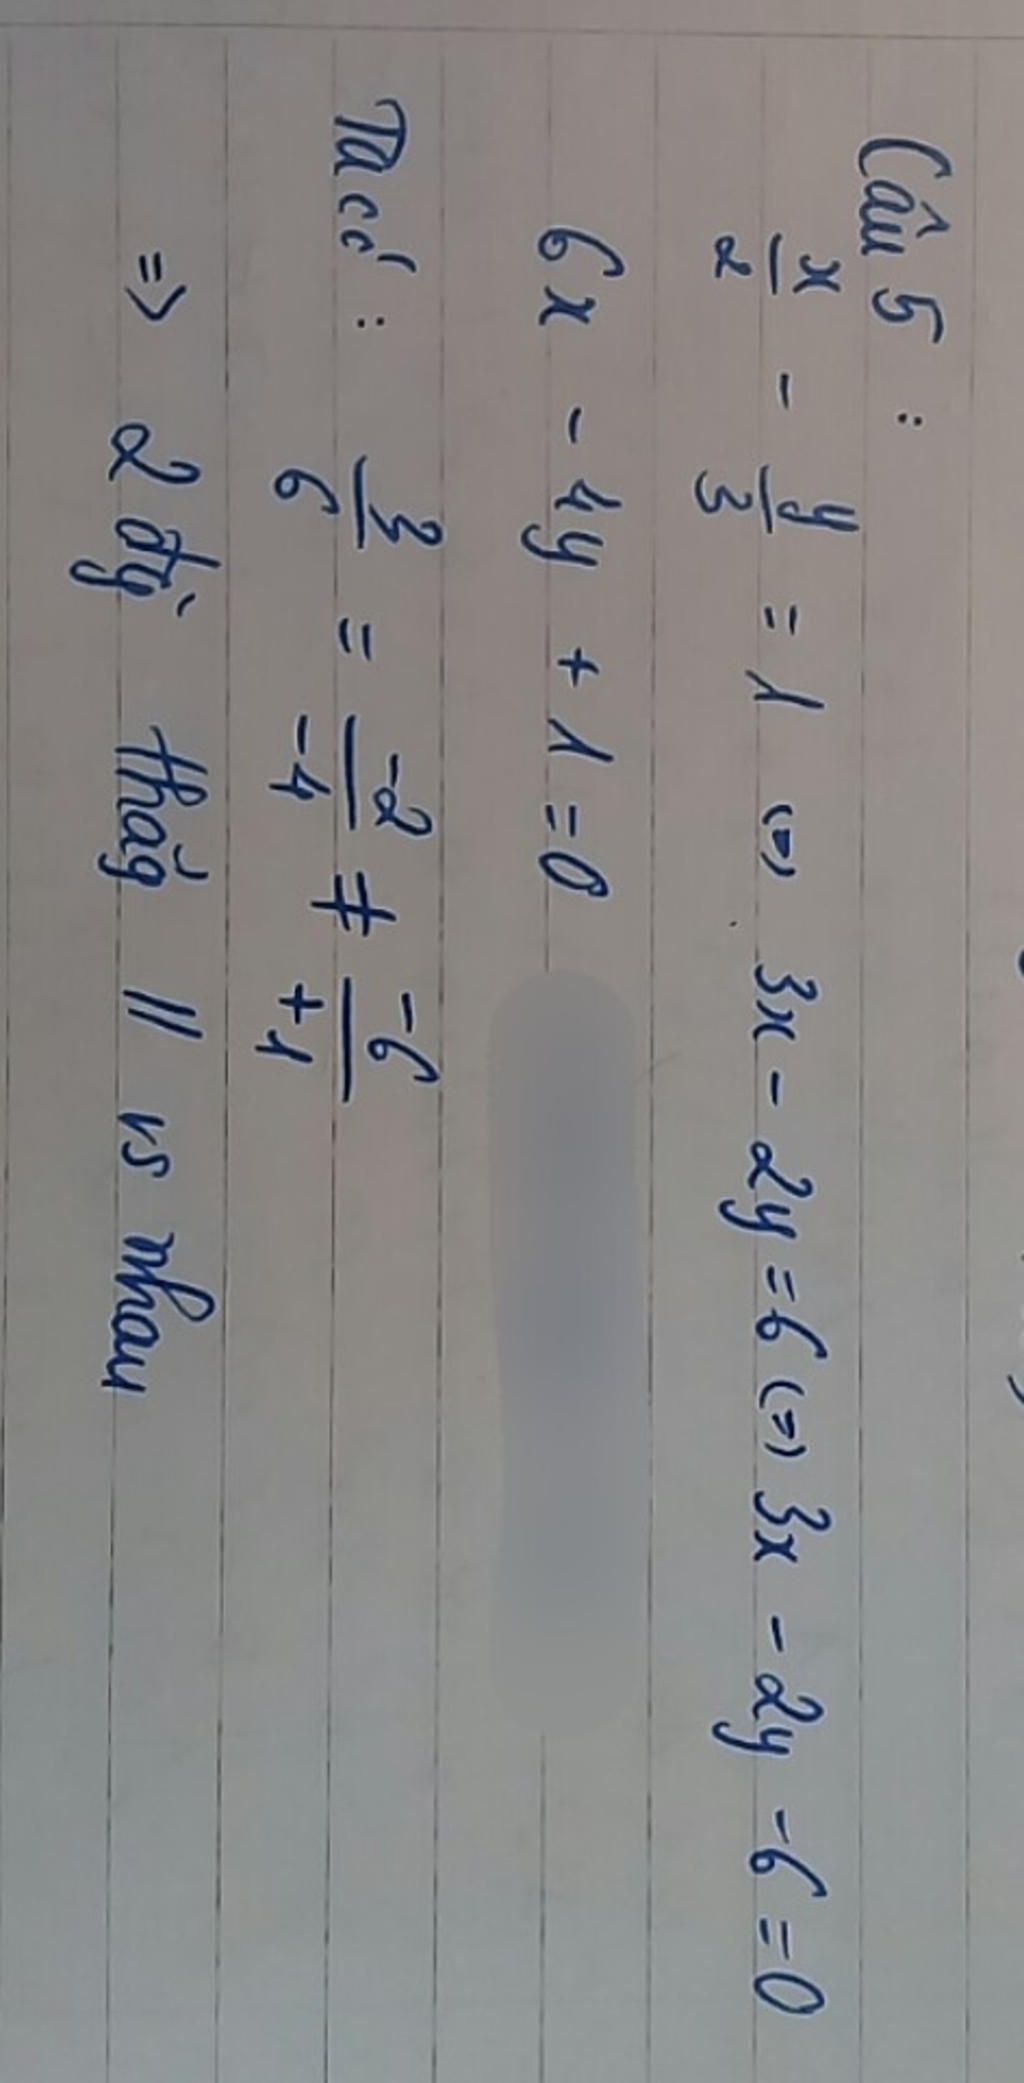 Câu 5 :
x/2 - y/3 = 1 (=) 3x - 2y = 6 (=) 3x - 2y - 6 = 0
6x - 4y + 1 = 0
Ta có : 3/6 = -2/-4 ≠ -6/+1
=> 2 đỳ thảg // vs nhau